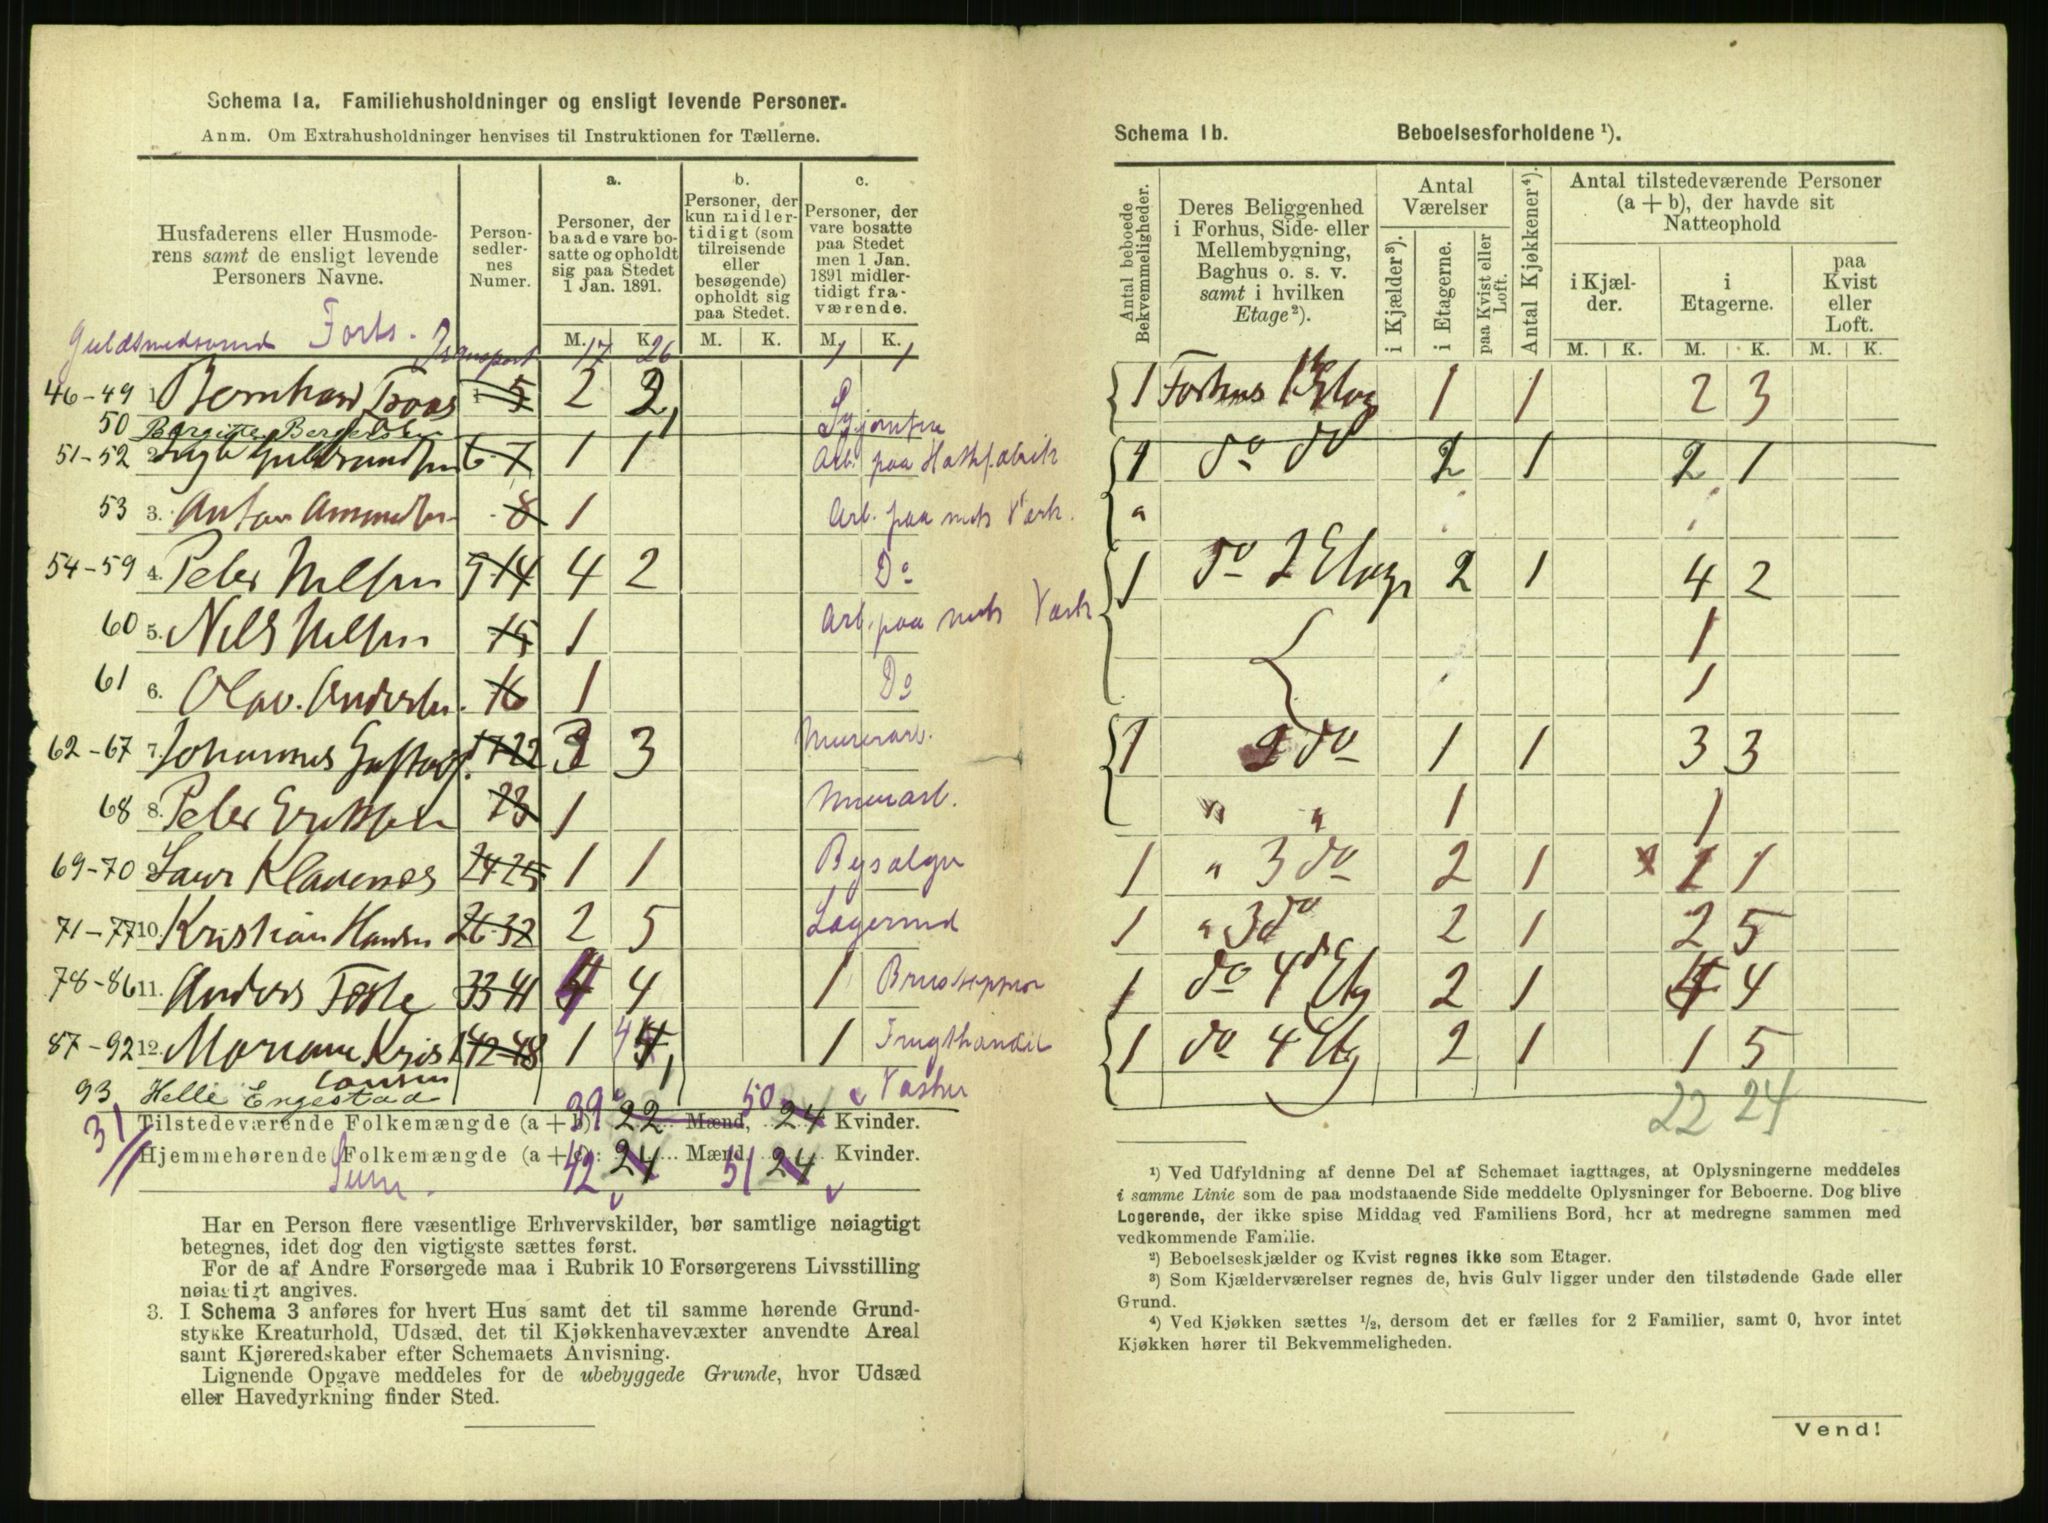 Schema 1a. Familiehusholdninger og ensligt levende Personer.
Anm. Om Extrahusholdninger henvises til Instruktionen for Tællerne.
Husfaderens eller Husmoderens samt de ensligt levende Personers Navne.
Personsedlernes Numer.
a.
Personer, der baade vare bosatte og opholdt sig paa Stedet 1 Jan. 1891.
b.
Personer, der kun midlertidigt (som tilreisende eller besøgende) opholdt sig paa Stedet.
c.
Personer, der vare bosatte paa Stedet men 1 Jan. 1891 midlertidigt fraværende.
M. K. M. K. M. K.
Guldsmedsvend Forts. Transport 17 26 1 1
46-49 1. Bernhard 5 2 2,
50 Birgitte Bergersen Syjomfru
51-52 2. 6-7 1 1 Arb. paa
53 3. Anton 8 1 Arb. paa mek Værk.
54-59 4. Peter Nilsen 9-14 4 2 Do
60 5. Nils Nilsen 15 1 Arb. paa mek Værk
61 6. Olav. Andersen. 16 1 Do
62-67 7. Johannes 17-22 3 3 Murerarb.
68 8. Peter 23 1 Murarb.
69-70 9. Laur Klavenes 24 25 1 1 Bysælger
71-77 10. Kristian Hansen 26-32 2 5
78-86 11. Anders 33-41 4 4 1
87-92 12. Mariane Kristiansen 42-48 1 4, 1 Frugthandel
93 Helle Engestad
31
Tilstedeværende Folkemængde (a + b): 39 22 Mænd, 50 24 Kvinder.
Hjemmehørende Folkemængde (a + c): 42 24 Mænd 51 24 Kvinder.
Sum.
Har en Person flere væsentlige Erhvervskilder, bør samtlige nøiagtigt
betegnes, idet dog den vigtigste sættes først.
For de af Andre Forsørgede maa i Rubrik 10 Forsørgerens Livsstilling
nøiagtigt angives.
3. I Schema 3 anføres for hvert Hus samt det til samme hørende Grund-
stykke Kreaturhold, Udsæd, det til Kjøkkenhavevæxter anvendte Areal
samt Kjøreredskaber efter Schemaets Anvisning.
Lignende Opgave meddeles for de ubebyggede Grunde, hvor Udsæd
eller Havedyrkning finder Sted.
Schema 1b. Beboelsesforholdene ¹).
Antal beboede Bekvemmeligheder.
Deres Beliggenhed i Forhus, Side- eller Mellembygning, Baghus o. s. v. samt i hvilken Etage²).
Antal Værelser
i Kjælder³).
i Etagerne.
paa Kvist eller Loft.
Antal Kjøkkener⁴).
Antal tilstedeværende Personer (a + b), der havde sit Natteophold
i Kjælder.
i Etagerne.
paa Kvist eller Loft.
M. K. M. K. M. K.
1 Forhus 1 Etag 1 1 2 3
1 do do 2 1 2 1
"
1 do 2 Etage 2 1 4 2
1
1
1 2 do 1 1 3 3
" " 1 1
1 " 3 do 2 1 1 1
1 " 3 do 2 1 2 5
1 do 4de Etg 2 1 4 4
1 do 4 Etg 2 1 1 5
22 24
¹) Ved Udfyldning af denne Del af Schemaet iagttages, at Oplysningerne meddeles
i samme Linie som de paa modstaaende Side meddelte Oplysninger for Beboerne. Dog blive
Logerende, der ikke spise Middag ved Familiens Bord, her at medregne sammen med
vedkommende Familie.
²) Beboelseskjælder og Kvist regnes ikke som Etager.
³) Som Kjælderværelser regnes de, hvis Gulv ligger under den tilstødende Gade eller
Grund.
⁴) Ved Kjøkken sættes ½, dersom det er fælles for 2 Familier, samt 0, hvor intet
Kjøkken hører til Bekvemmeligheden.
Vend!